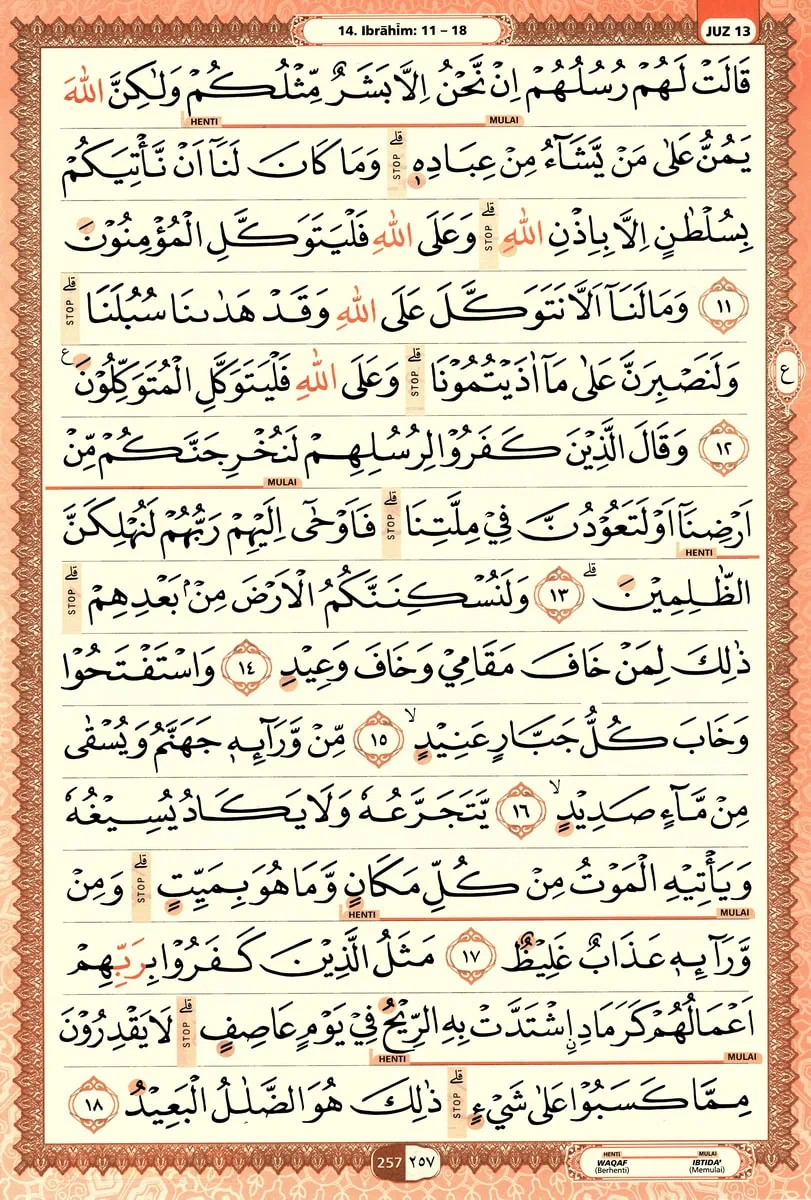 14. Ibrāhīm: 11 – 18
JUZ 13
قَالَتْ لَهُمْ رُسُلُهُمْ اِنْ نَّحْنُ اِلَّا بَشَرٌ مِّثْلُكُمْ وَلٰكِنَّ اللّٰهَ
HENTI MULAI
يَمُنُّ عَلٰى مَنْ يَّشَاۤءُ مِنْ عِبَادِهٖ ۗ STOP وَمَا كَانَ لَنَآ اَنْ نَّأْتِيَكُمْ
بِسُلْطٰنٍ اِلَّا بِاِذْنِ اللّٰهِ ۗ STOP وَعَلَى اللّٰهِ فَلْيَتَوَكَّلِ الْمُؤْمِنُوْنَ
١١ وَمَا لَنَآ اَلَّا نَتَوَكَّلَ عَلَى اللّٰهِ وَقَدْ هَدٰىنَا سُبُلَنَا ۗ STOP
وَلَنَصْبِرَنَّ عَلٰى مَآ اٰذَيْتُمُوْنَا ۗ STOP وَعَلَى اللّٰهِ فَلْيَتَوَكَّلِ الْمُتَوَكِّلُوْنَ ع
ع
١٢ وَقَالَ الَّذِيْنَ كَفَرُوْا لِرُسُلِهِمْ لَنُخْرِجَنَّكُمْ مِّنْ
MULAI
اَرْضِنَآ اَوْ لَتَعُوْدُنَّ فِيْ مِلَّتِنَا ۗ STOP فَاَوْحٰٓى اِلَيْهِمْ رَبُّهُمْ لَنُهْلِكَنَّ
HENTI
الظّٰلِمِيْنَ ۗ ١٣ وَلَنُسْكِنَنَّكُمُ الْاَرْضَ مِنْۢ بَعْدِهِمْ ۗ STOP
ذٰلِكَ لِمَنْ خَافَ مَقَامِيْ وَخَافَ وَعِيْدِ ١٤ وَاسْتَفْتَحُوْا
وَخَابَ كُلُّ جَبَّارٍ عَنِيْدٍ ۙ ١٥ مِّنْ وَّرَاۤىِٕهٖ جَهَنَّمُ وَيُسْقٰى
مِنْ مَّاۤءٍ صَدِيْدٍ ۙ ١٦ يَّتَجَرَّعُهٗ وَلَا يَكَادُ يُسِيْغُهٗ
وَيَأْتِيْهِ الْمَوْتُ مِنْ كُلِّ مَكَانٍ وَّمَا هُوَ بِمَيِّتٍ ۗ STOP وَمِنْ
HENTI MULAI
وَّرَاۤىِٕهٖ عَذَابٌ غَلِيْظٌ ١٧ مَثَلُ الَّذِيْنَ كَفَرُوْا بِرَبِّهِمْ
اَعْمَالُهُمْ كَرَمَادِ ِۨاشْتَدَّتْ بِهِ الرِّيْحُ فِيْ يَوْمٍ عَاصِفٍ ۗ STOP لَا يَقْدِرُوْنَ
HENTI MULAI
مِمَّا كَسَبُوْا عَلٰى شَيْءٍ ۗ STOP ذٰلِكَ هُوَ الضَّلٰلُ الْبَعِيْدُ ١٨
257 ٢٥٧
HENTI MULAI
WAQAF IBTIDA'
(Berhenti) (Memulai)